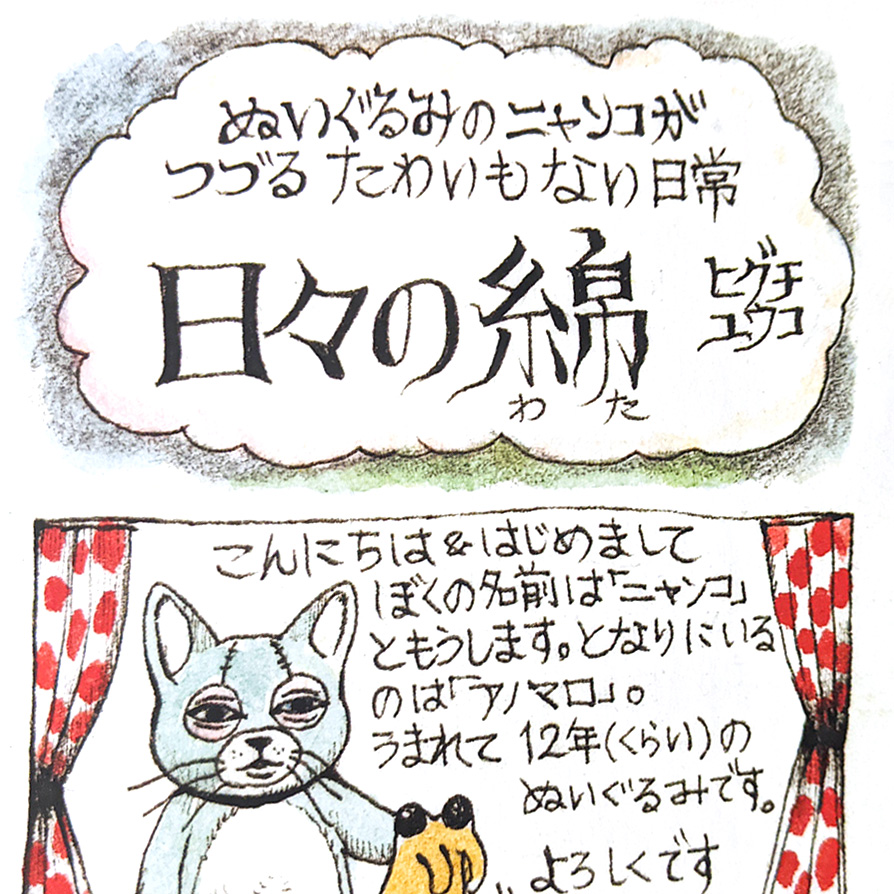 ぬいぐるみのニャンコが
つづるたわいもない日常
日々の綿
わた
ヒグチ
ユウコ
こんにちは&はじめまして
ぼくの名前は「ニャンコ」
ともうします。となりにいる
のは「アノマロ」。
うまれて12年(くらい)の
ぬいぐるみです。
よろしくです